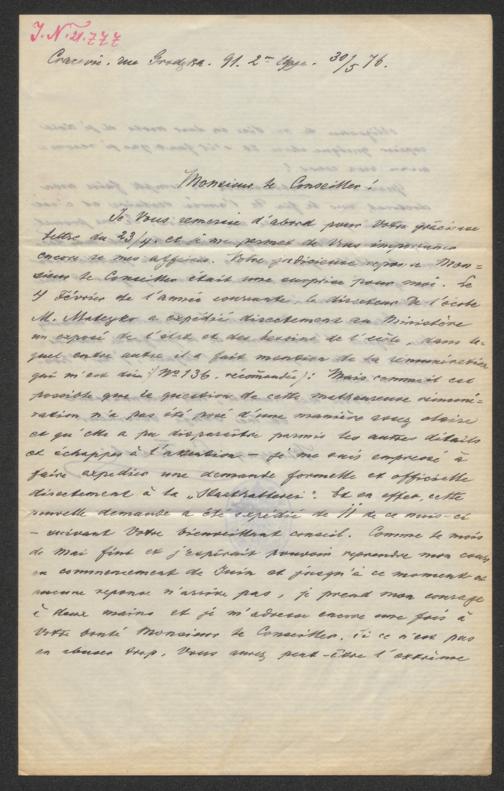 J. N. 21.777
Cracovie. rue Grodzka. 91. 2me étage. 30/5 76.
Monsieur le Conseiller!
Je Vous remercie d'abord pour Votre gracieuse
lettre du 23/4. et je me permet de Vous importuner
encore de mes affaires. Votre judicieuse reponse Mon=
sieur le Conseiller était une surprise pour moi. Le
4 Février de l'année courante, le directeur de l'école
M. Matejko a expédié directement au Ministère
un exposé de l'état et des besoins de l'école, dans le=
quel entre autre il a fait mention de la remunération
qui m'est due (No 136. récomandé): Mais comment est
possible que la question de cette malheureuse rémuné=
ration n'a pas été posé d'une manière assez claire
et qu'elle a pu disparaître parmis les autres détails
et échapper à l'attention – je me suis empressé à
faire expedier une demande formelle et officielle
directement à la „Statthalterei". Et en effet, cette
nouvelle demande a été expédié de 11 de ce mois-ci
– suivant Votre bienveillant conseil. Comme le mois
de Mai finit et j'espérait pouvoir reprendre mon cours
au commencement de Juin et jusqu'à ce moment-ci
aucune reponse n'arrive pas, je prend mon courage
à deux mains et je m'adresse encore une fois à
Votre bonté Monsieur le Conseiller. Si ce n'est pas
en abuser trop, Vous aurez peut-être l'extrème